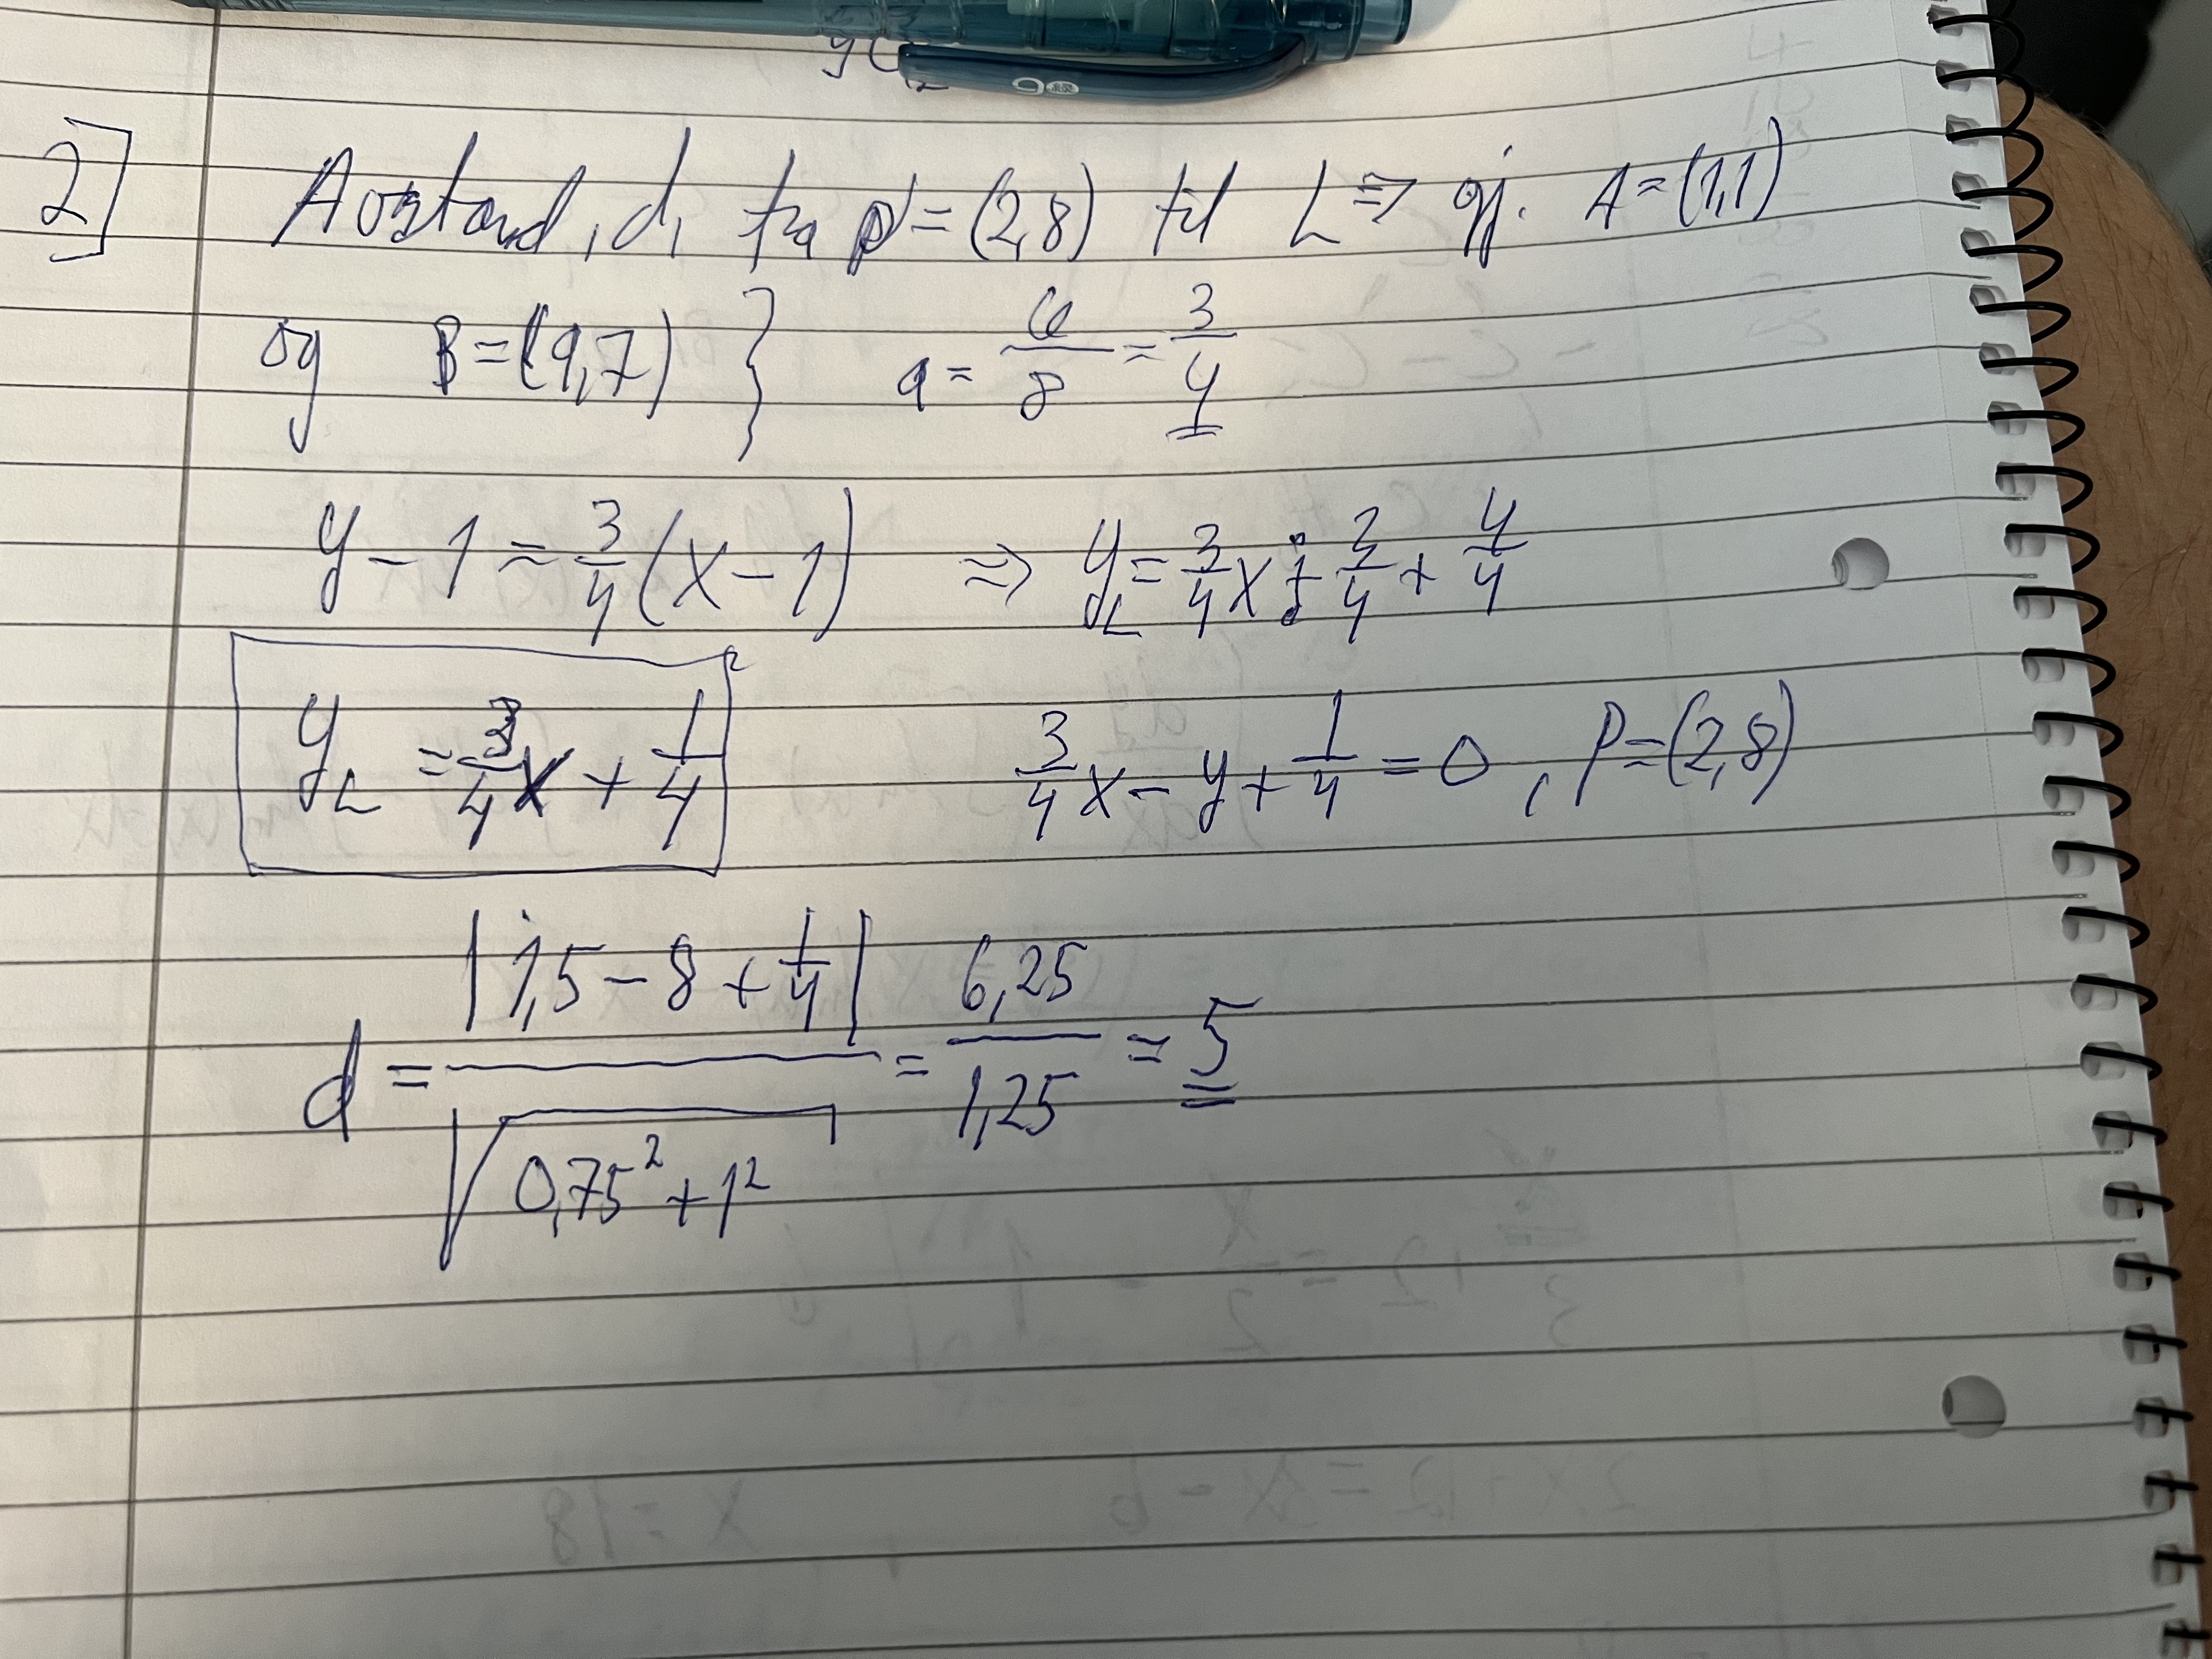 2] Avstand, d, fra P = (2,8) til L => gj. A = (1,1)
og B = (9,7) } a = 6/8 = 3/4
y - 1 = 3/4 (x - 1) => y_L = 3/4 x - 3/4 + 4/4
y_L = 3/4 x + 1/4 3/4 x - y + 1/4 = 0, P = (2,8)
d = |1,5 - 8 + 1/4| / √(0,75² + 1²) = 6,25 / 1,25 = 5